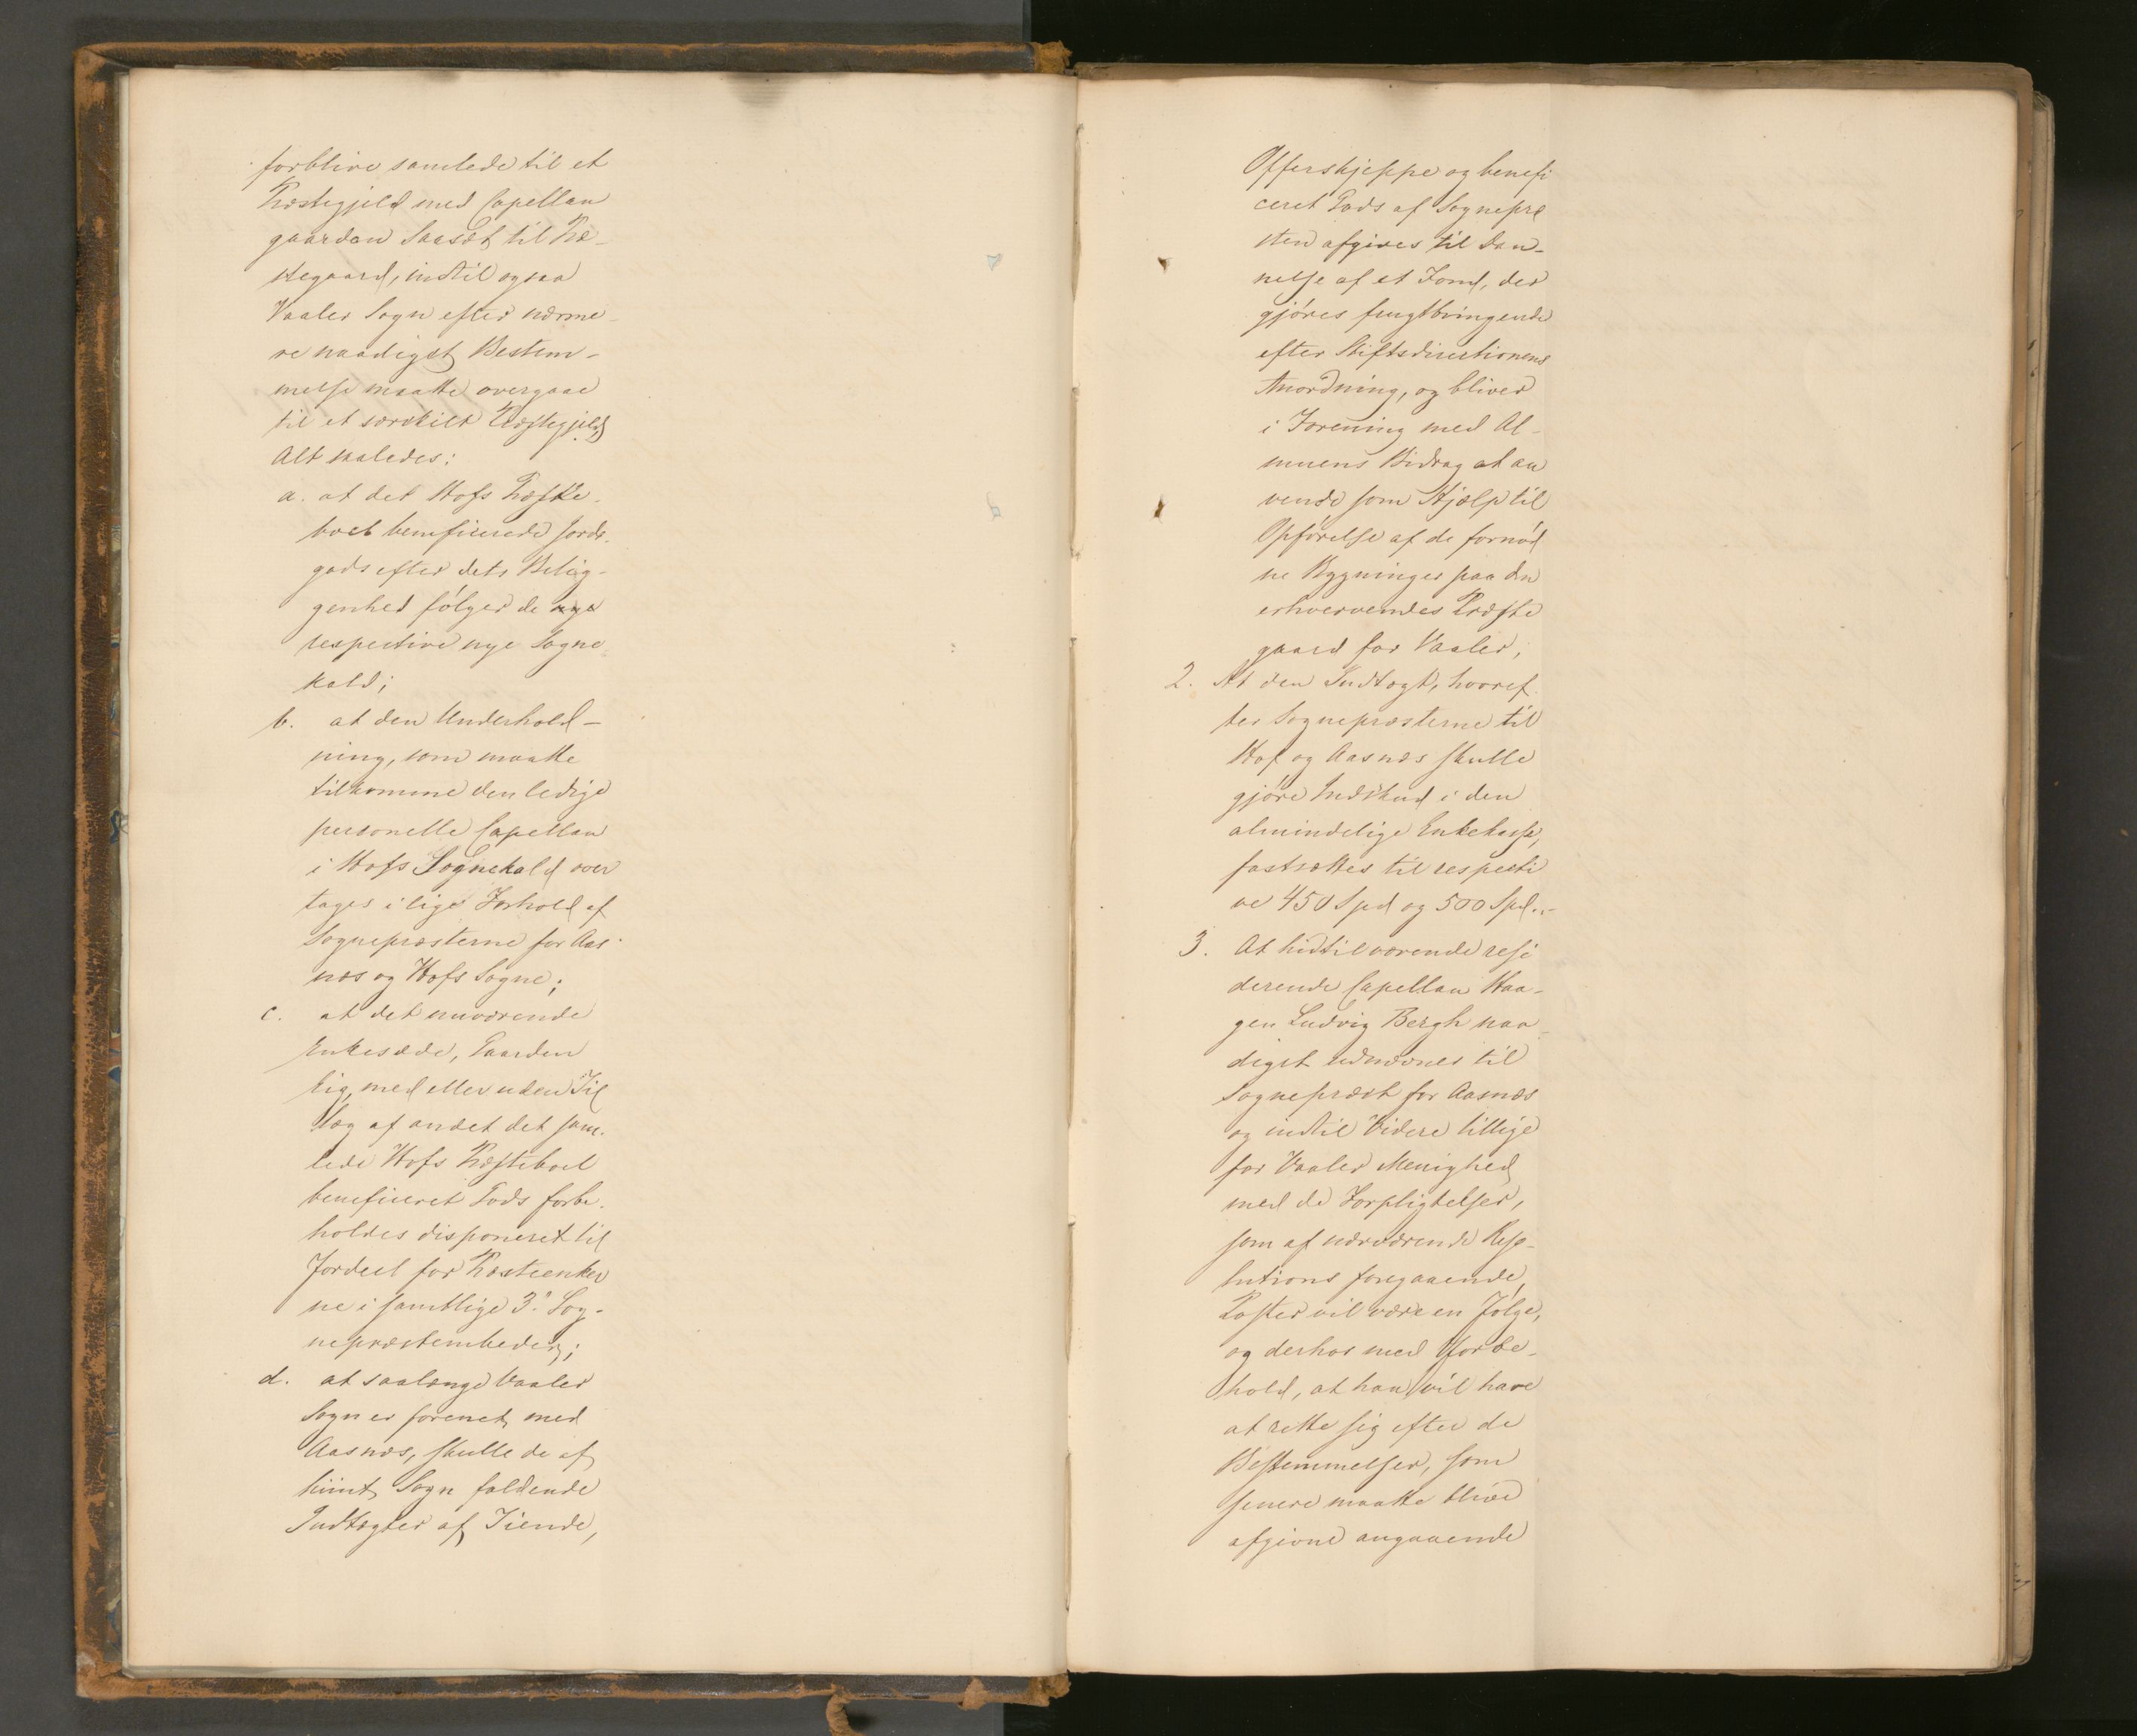 forblive samlede til et
Præstegjeld med Capellan
gaarden Saaset til Præ-
stegaard, indtil ogsaa
Vaaler Sogn efter nærme-
re naadigst Bestem-
melse maatte overgaae
til et særskilt Præstegjeld,
Alt saaledes:
a. at det Hofs Præste-
boel beneficerede Jorde-
gods efter dets Belig-
genhed følger de nye
respective nye Sogne-
kald;
b. at den Underhold-
ning, som maatte
tilkomme den ledige
personelle Capellan
i Hofs Sognekald over
tages i lige Forhold af
Sognepræsterne for Aas-
næs og Hofs Sogne;
c. at det nuværende
Enkesæde, Gaarden
Lig, med eller uden Til
læg af andet det sam-
lede Hofs Præsteboel
beneficeret Gods forbe-
holdes disponeret til
Fordeel for Præsteenker
ne i samtlige 3de Sog-
nepræstembeder;
d. at saalænge Vaaler
Sogn er forenet med
Aasnæs, skulle de af
hiint Sogn faldende
Indtægter af Tiende,
Offerskjeppe og benefi
ceret Gods af Sognepræ
sten afgives til Dan-
nelse af et Fond, der
gjøres frugtbringende
efter Stiftsdirectionens
Anordning, og bliver
i Forening med Al-
muens Bidrag at an
vende som Hjælp til
Opførelse af de fornød
ne Bygninger paa den
erhvervendes Præste
gaard for Vaaler;
2. At den Indtægt, hvoref-
ter Sognepræsterne til
Hof og Aasnæs skulle
gjøre Indskud i den
almindelige Enkekasse,
fastsættes til respecti
ve 450 Spd og 500 Spd..-
3. At hidtilværende resi
derende Capellan Haa-
gen Ludvig Bergh naa-
digst udnævnes til
Sognepræst for Aasnæs
og indtil Videre tillige
for Vaaler Menighed
med de Forpligtelser,
som af nærværende Reso-
lutions foregaaende
Poster vil være en Følge,
og derhos med Forbe-
hold, at han vil have
at rette sig efter de
Bestemmelser, som
senere maatte blive
afgivne angaaende